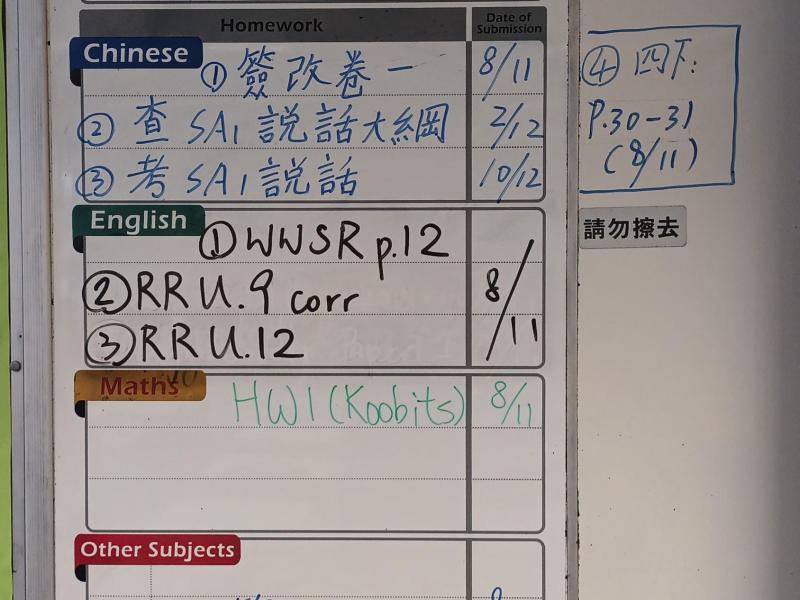 Homework
Date of
Submission
Chinese
① 簽改卷一 8/11
② 查 SA1 説話大綱 2/12
③ 考 SA1 説話 10/12
④ 四下:
P.30-31
(8/11)
請勿擦去
English
① WWSR p.12
② RR U.9 corr 8/11
③ RR U.12
Maths
HW1 (Koobits) 8/11
Other Subjects